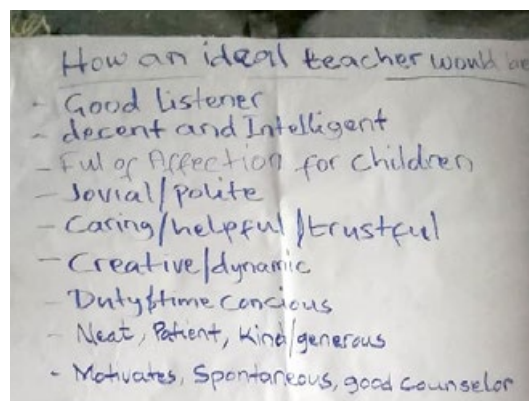 How an ideal teacher would be
- Good listener
- decent and Intelligent
- Ful of Affection for children
- Jovial/polite
- Caring/helpful/trustful
- Creative/dynamic
- Duty/time concious
- Neat, Patient, Kind/generous
- Motivates, Spontaneous, good counselor